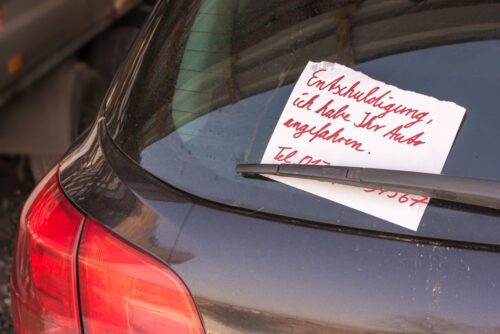 Entschuldigung,
ich habe Ihr Auto
angefahren.
Tel